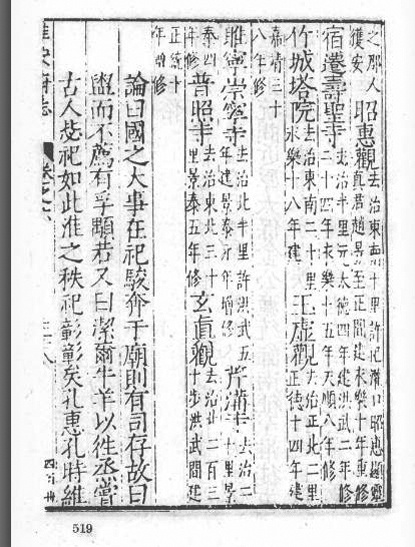 之那人獲安 昭惠觀 去治東南十里許地濱口昭惠顯靈真君趙昱至正間建永樂十年重修
宿遷壽聖寺 去治半里元大德四年建洪武二年修二十四年永樂十五年天順八年修
竹城塔院 去治東南二十里永樂十八年建 玉虛觀 去治正北二里正德十四年建
嘉靖三十八年修
睢寧崇寧寺 去治北半里許洪武五年建景泰元年增修 芹溝寺 去治二十里景
泰四年修 普照寺 去治東北三十里景泰五年修 玄真觀 去治二百三十步洪武間建
正德十年增修
論曰國之大事在祀駿奔于廟則有司存故曰
盥而不薦有孚顒若又曰潔爾牛羊以往烝嘗
古人祀如此淮之秩祀彰彰矣孔惠孔時維
淮安府志 卷之六
519